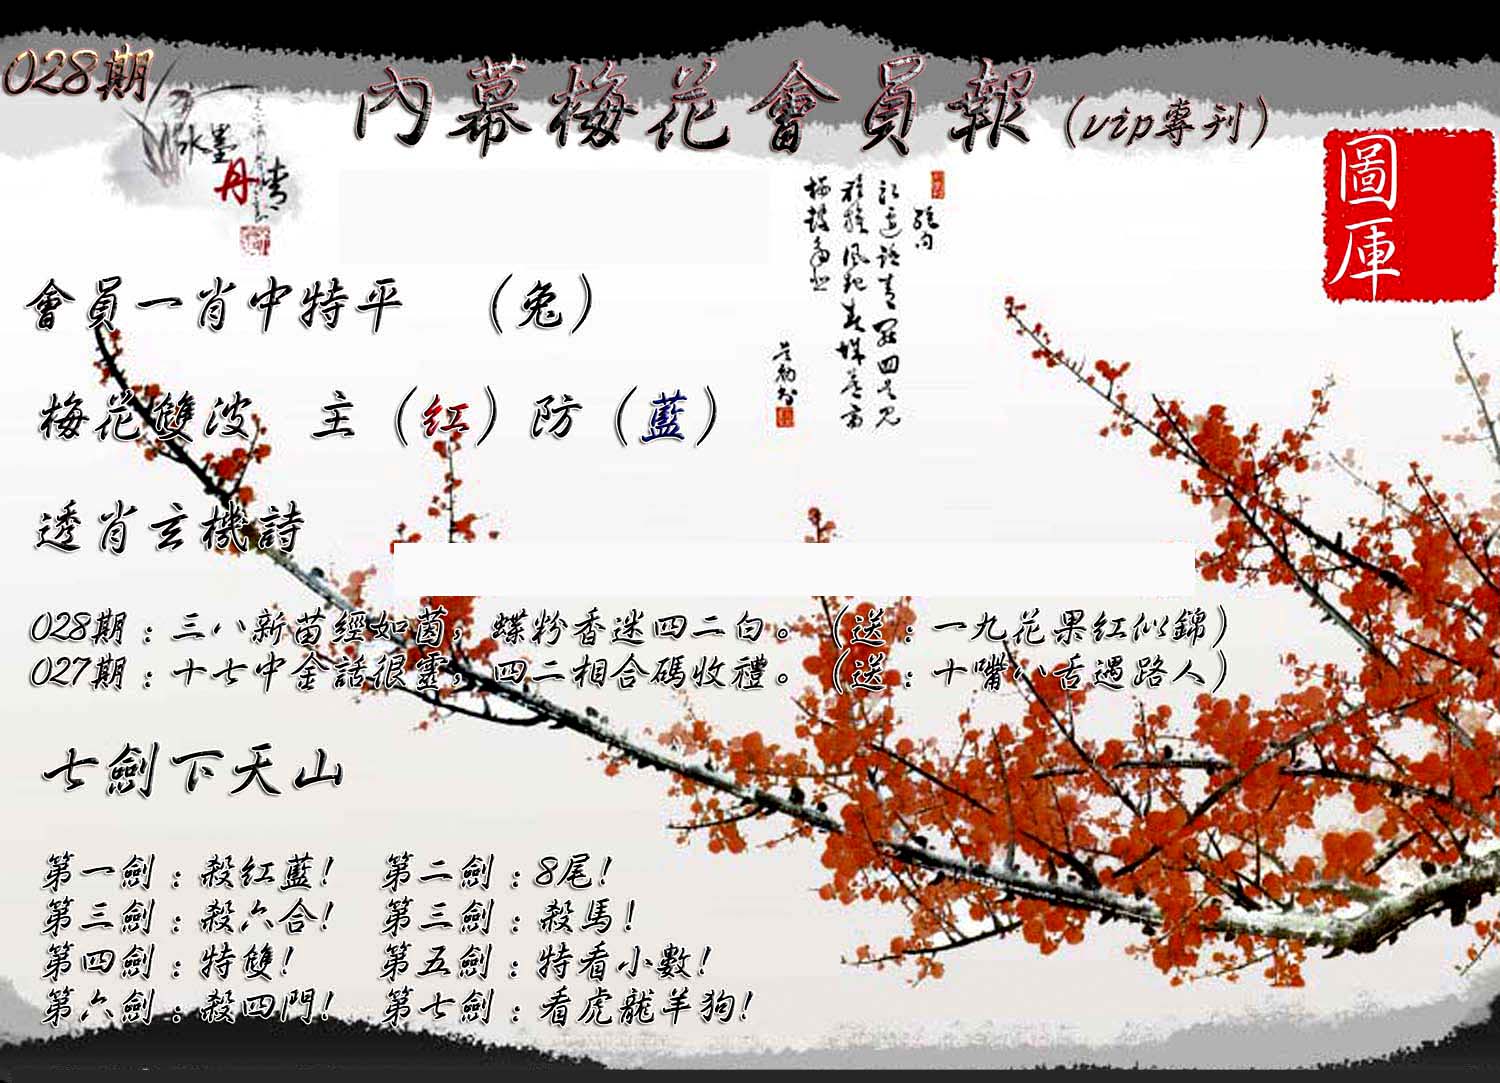 028期
內幕梅花會員報(vip專刊)
水墨
丹青
圖庫
會員一肖中特平 (兔)
梅花雙波 主(紅)防(藍)
透肖玄機詩
028期:三八新苗經如茵,蝶粉香迷四二白。(送:一九花果紅似錦)
027期:十七中金話很靈,四二相合碼收禮。(送:十嘴八舌遇路人)
七劍下天山
第一劍:殺紅藍! 第二劍:8尾!
第三劍:殺六合! 第三劍:殺馬!
第四劍:特雙! 第五劍:特看小數!
第六劍:殺四門! 第七劍:看虎龍羊狗!